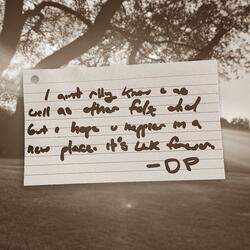 I ain't rlly know u as
well as other folx did
but i hope u happier in a
new place. it's LLK forever
—DP